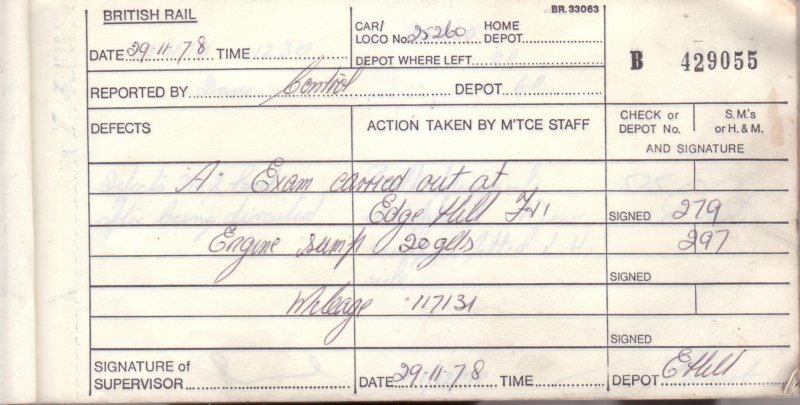 BRITISH RAIL
BR.33063
CAR/ LOCO No. 25260 HOME DEPOT
DATE 29-11-78 TIME
DEPOT WHERE LEFT
B 429055
REPORTED BY Control DEPOT
DEFECTS
ACTION TAKEN BY M'TCE STAFF
CHECK or DEPOT No.
S.M's or H. & M.
AND SIGNATURE
A. Exam carried out at
Edge Hill
SIGNED 279
Engine sump 20 glls
297
SIGNED
Mileage 117131
SIGNED
SIGNATURE of SUPERVISOR
DATE 29-11-78 TIME
DEPOT E Hill